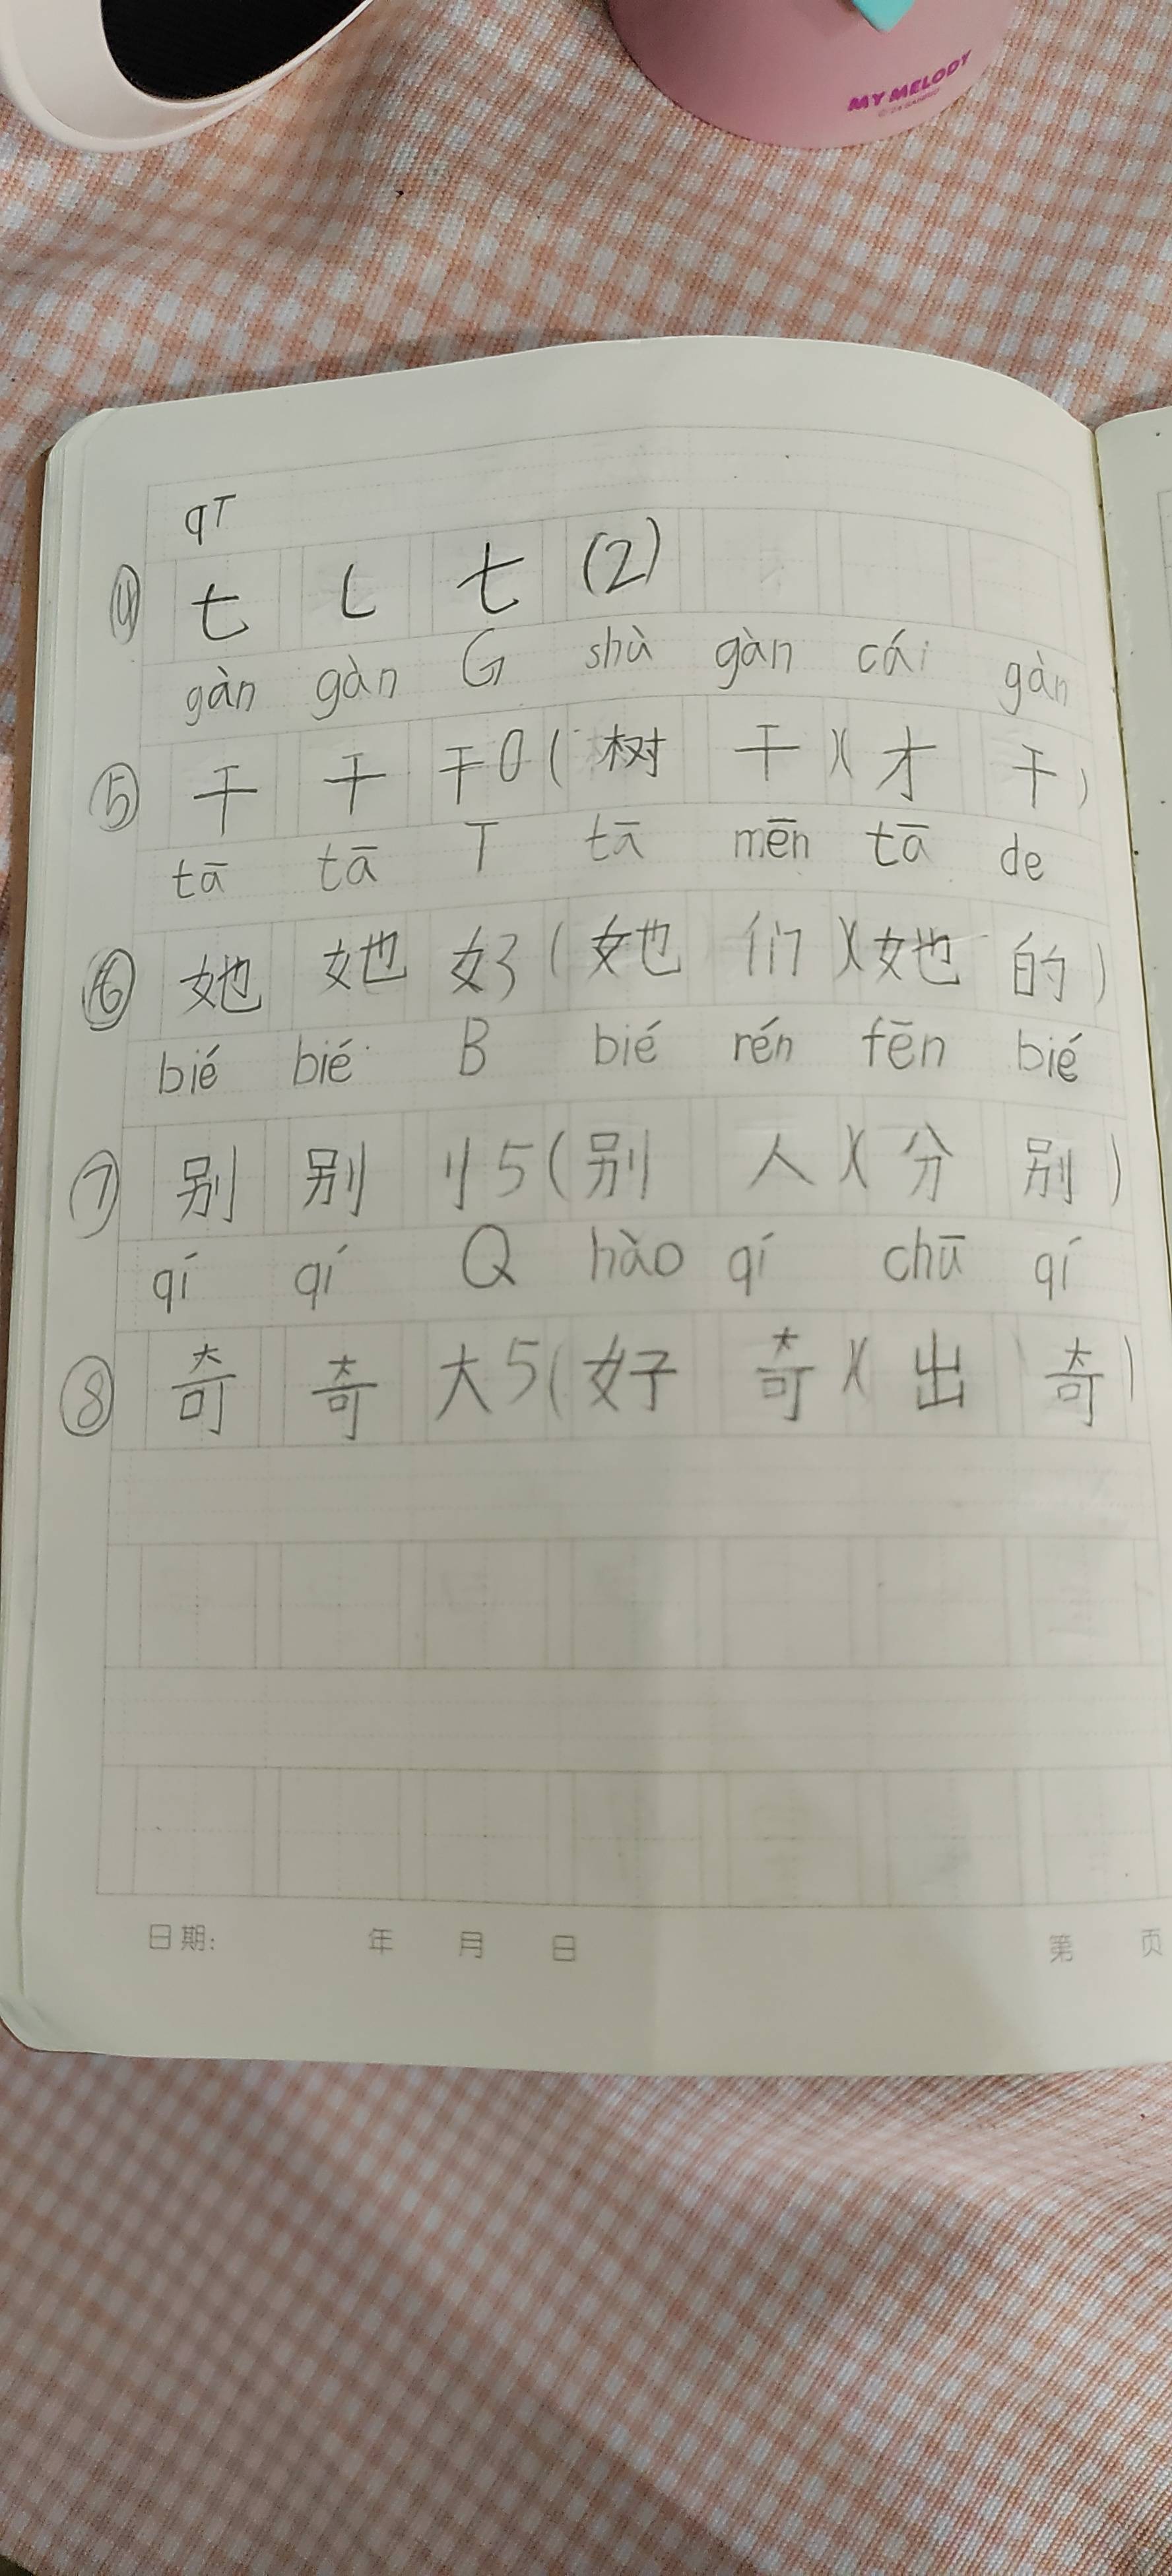 MY MELODY
qī
④ 七 乚 七 (2)
gàn gàn G shù gàn cái gàn
⑤ 干 干 干0(树 干)(才 干)
tā tā T tā mēn tā de
⑥ 她 她 女3(她 们)(她 的)
bié bié B bié rén fēn bié
⑦ 别 别 刂5(别 人)(分 别)
qí qí Q hào qí chū qí
⑧ 奇 奇 大5(好 奇)(出 奇)
日期: 年 月 日 第 页